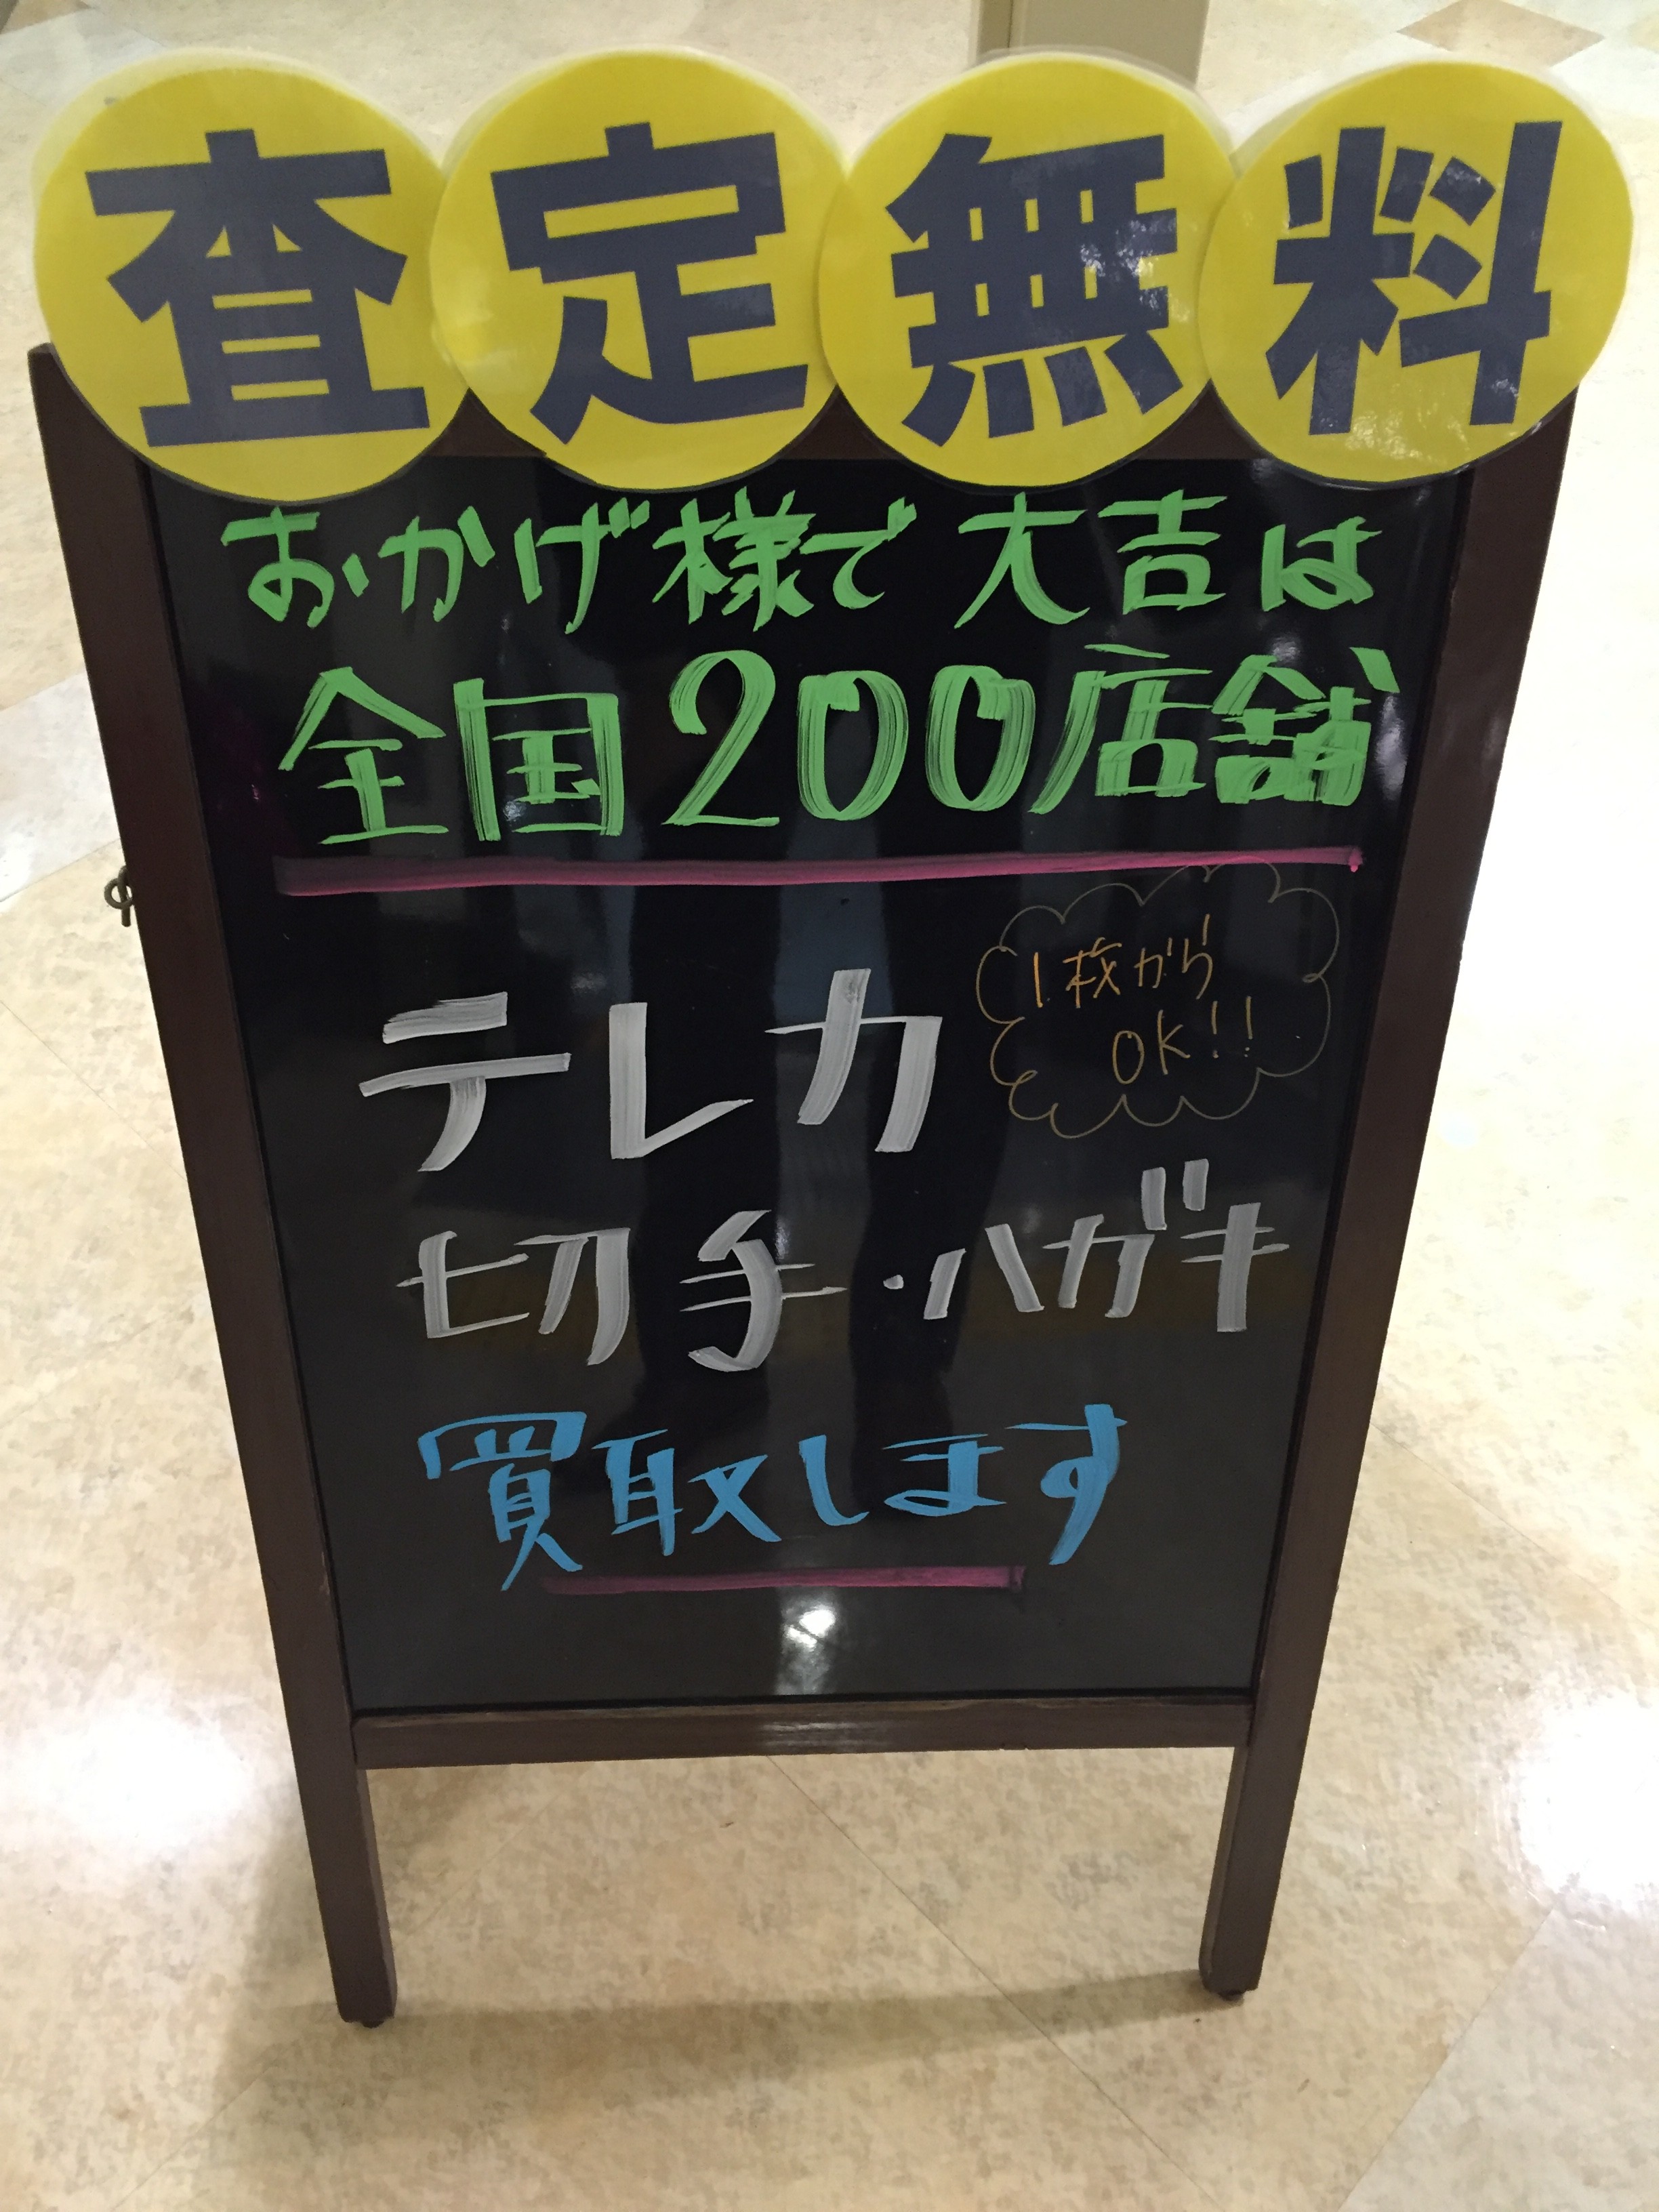 査定無料
おかげ様で 大吉は
全国200店舗
1枚から
OK!!
テレカ
切手・ハガキ
買取します